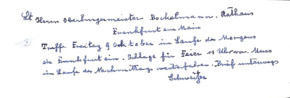 Herrn Oberbürgermeister Bockelmann, Rathaus
Frankfurt am Main
Treffe Freitag 9 Oktober im Laufe des Morgens
in Frankfurt ein. Schlage für Feier 11 Uhr vor. Muss
im Laufe des Nachmittags weiterfahren. Brief unterwegs
Schweitzer